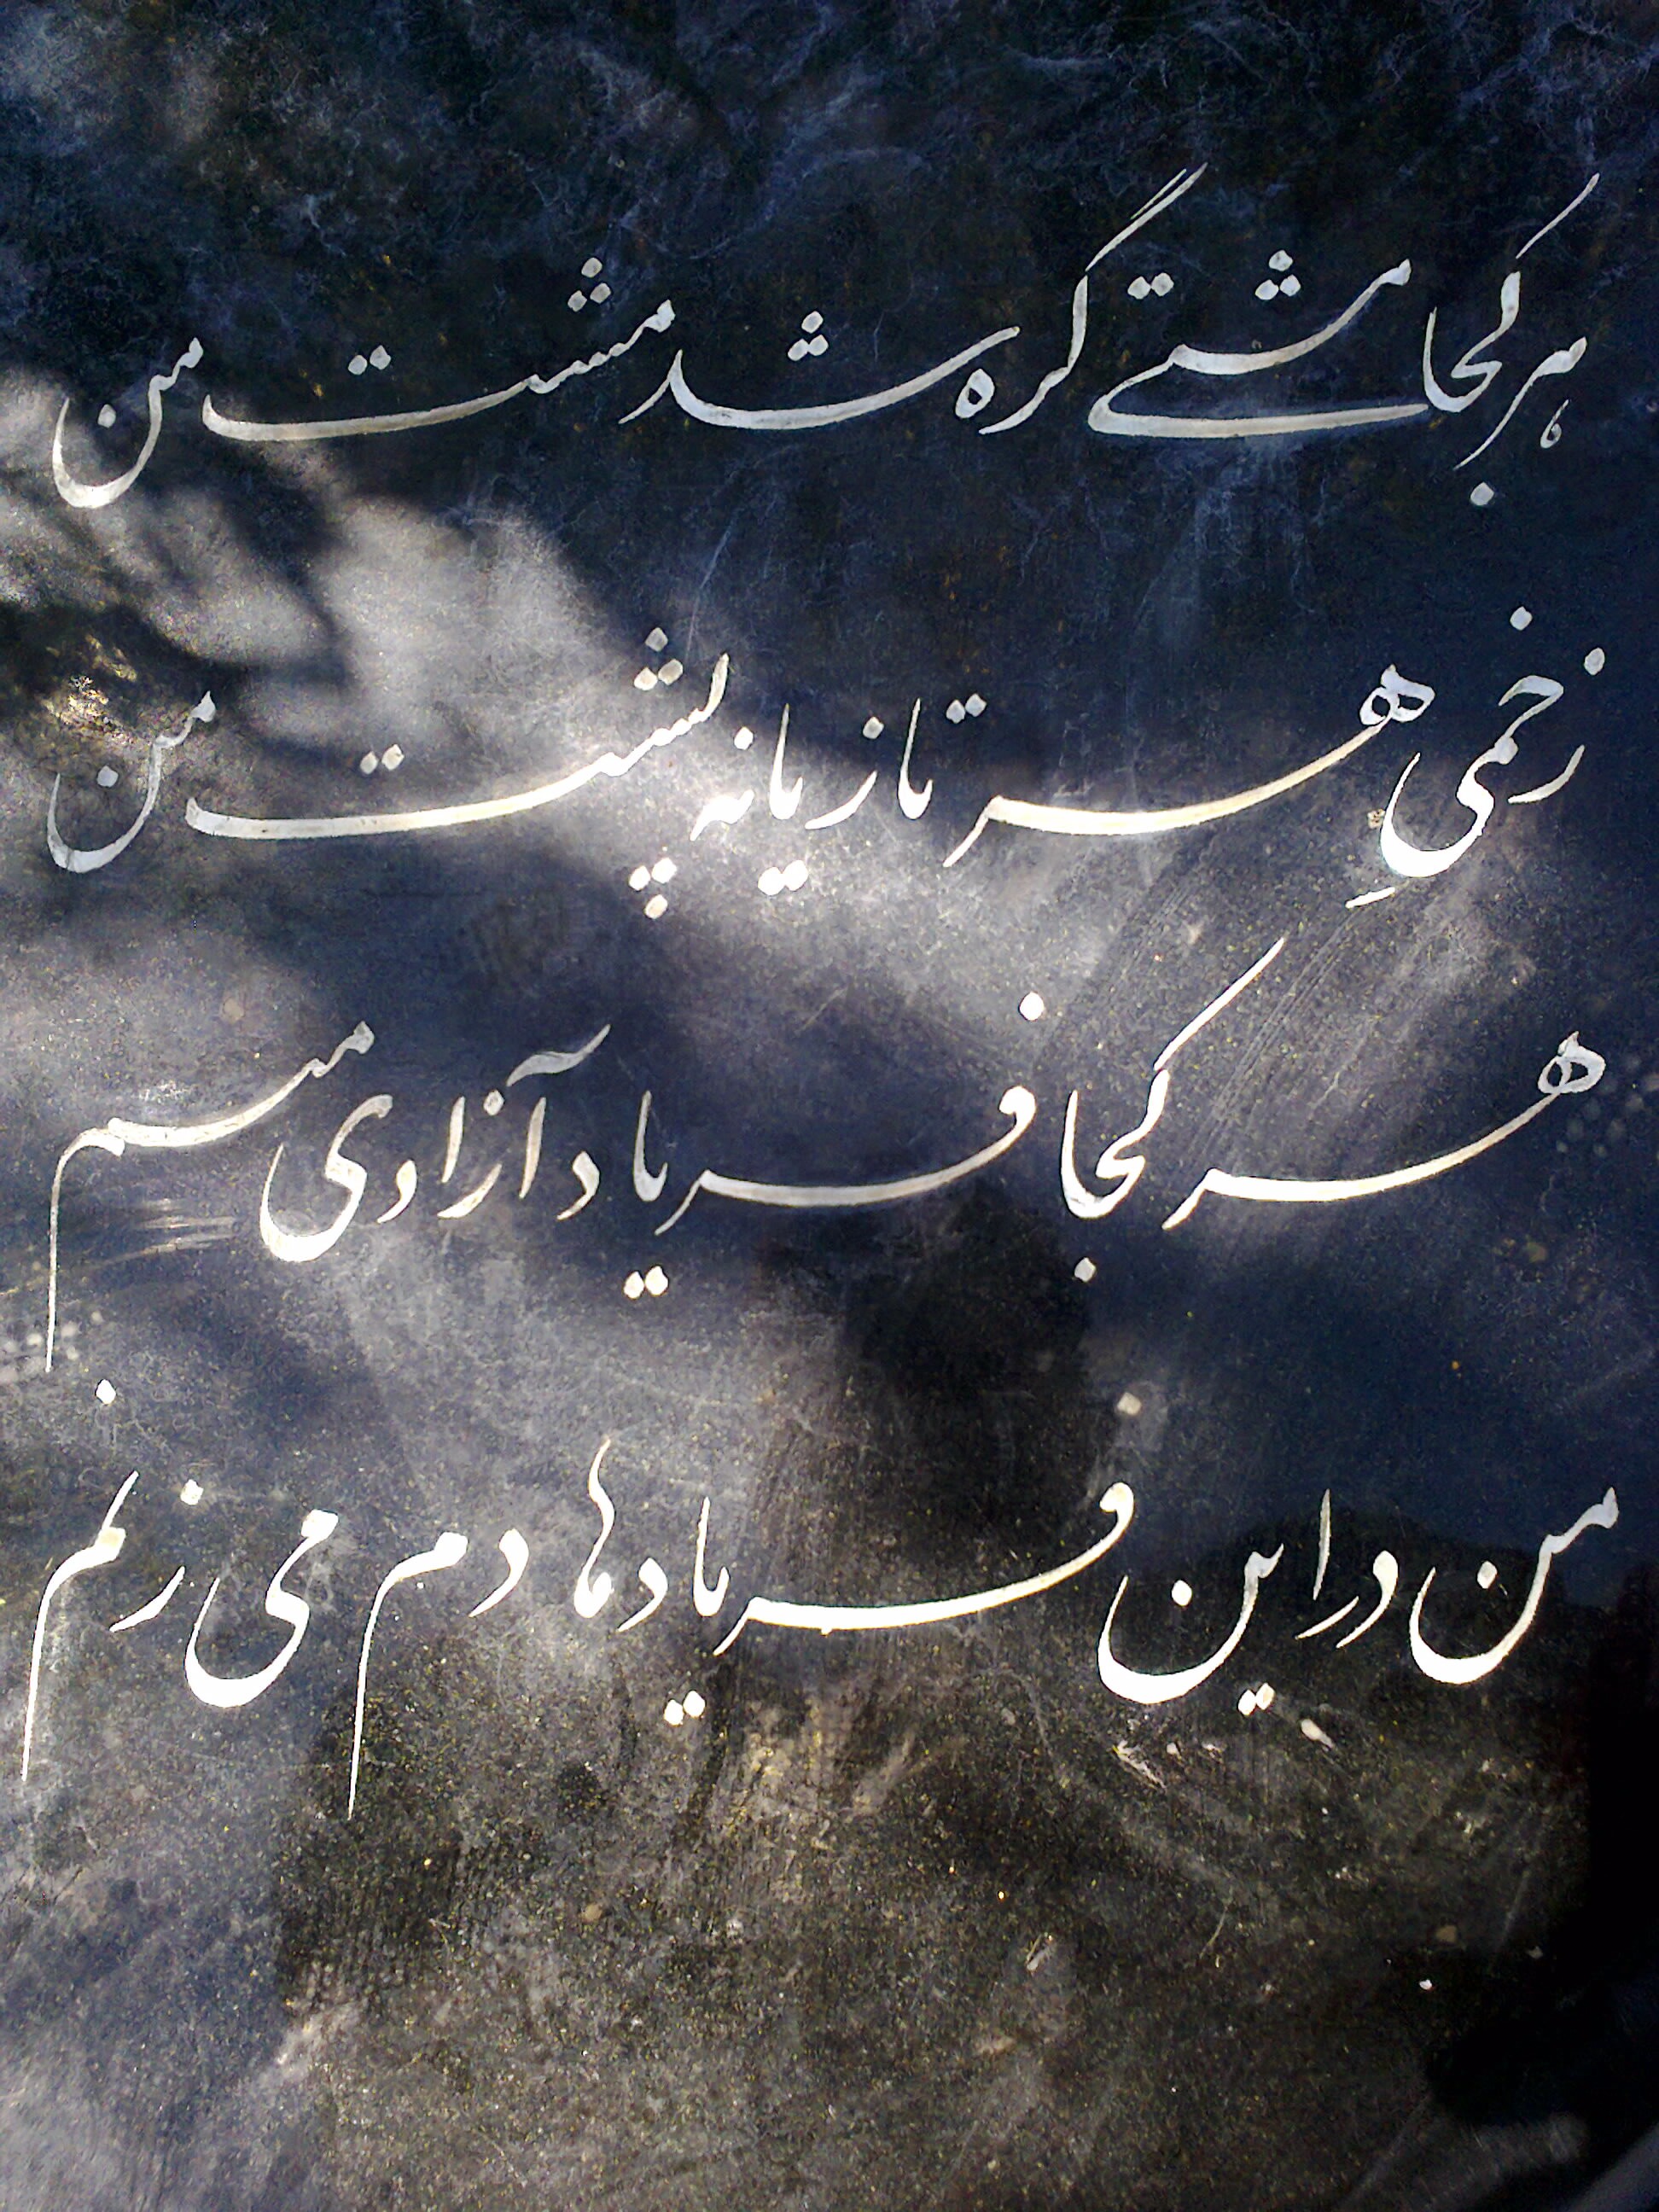 هر کجا مشتی گره شد مشت من
زخمیِ هر تازیانه پشت من
هر کجا فریاد آزادی منم
من در این فریادها دم می زنم